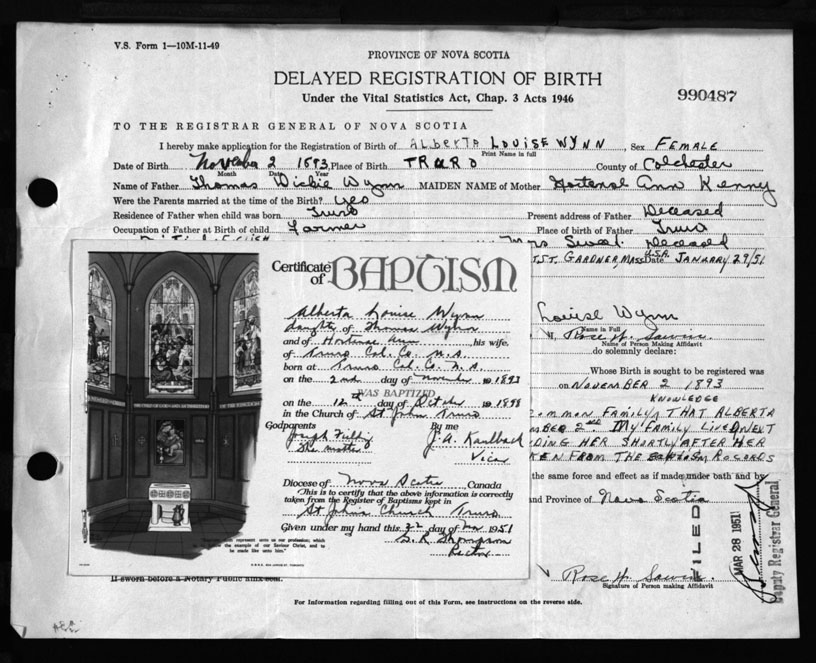 V.S. Form 1—10M-11-49
PROVINCE OF NOVA SCOTIA
DELAYED REGISTRATION OF BIRTH
Under the Vital Statistics Act, Chap. 3 Acts 1946
990487
TO THE REGISTRAR GENERAL OF NOVA SCOTIA
I hereby make application for the Registration of Birth of Alberta LOUISE WYNN, Sex FEMALE
Print Name in full
Date of Birth November 2 1893, Place of Birth TRURO County of Colchester
Month Date Year
Name of Father Thomas Dickie Wynn MAIDEN NAME of Mother Hortense Ann Kenny
Were the Parents married at the time of the Birth? yes
Residence of Father when child was born Truro Present address of Father Deceased
Occupation of Father at Birth of child Farmer Place of birth of Father Truro
Deceased
ST. GARDNER, MASS U.S.A. Date JANUARY 29/51
Certificate of BAPTISM
Alberta Louise Wynn
daughter of Thomas Wynn
and of Hortense Ann his wife,
of Truro Col. Co. N.S.
born at Truro Col. Co. N.S.
on the 2nd day of November 1893
WAS BAPTIZED
on the 12th day of October 1898
in the Church of St John Truro
Godparents By me
J. A. Kaulback
The mother
Vicar
Diocese of Nova Scotia Canada
This is to certify that the above information is correctly
taken from the Register of Baptisms kept in
St John's Church Truro
Given under my hand this day of 1951
G. R. Thompson
Rector
represent unto us our profession, which
the example of our Saviour Christ, and to
be made like unto him."
Louise Wynn
Name in Full
Rose W. Sawin.
Name of Person Making Affidavit
do solemnly declare:
Whose Birth is sought to be registered was
on NOVEMBER 2 1893
KNOWLEDGE
COMMON FAMILY THAT ALBERTA
MBER 2nd. MY FAMILY LIVED NEXT
DING HER SHORTLY AFTER HER
KEN FROM THE BAPTISM RECORDS
the same force and effect as if made under oath and by
and Province of Nova Scotia
FILED
MAR 28 1951
Deputy Registrar General
Rose W. Sawin.
Signature of Person making Affidavit
If sworn before a Notary Public affix seal.
For Information regarding filling out of this Form, see Instructions on the reverse side.